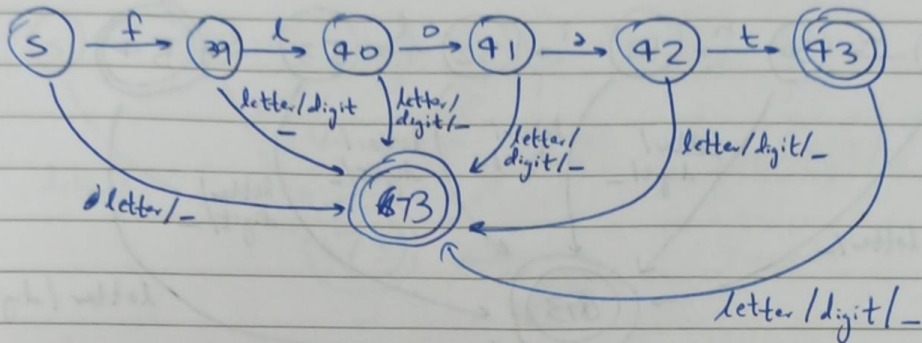 S f 39 l 40 o 41 a 42 t 43
letter/digit letter/ letter/ letter/digit/_
_ digit/_ digit/_
letter/_ 73
letter/digit/_